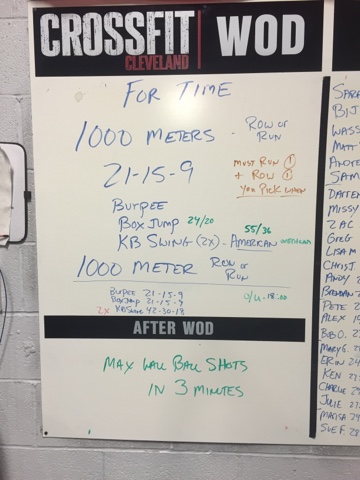 CROSSFIT
CLEVELAND
WOD
FOR TIME
1000 METERS - ROW OR RUN
21-15-9
MUST RUN 1
+ ROW 1
YOU PICK WHEN
BURPEE
BOX JUMP 24/20
55/36
KB SWING (2X) - AMERICAN
1000 METER ROW OR RUN
BURPEE 21-15-9
BOX JUMP 21-15-9
2X KB SWING 42-30-18
O/U - 18:00
AFTER WOD
MAX WALL BALL SHOTS
IN 3 MINUTES
SARA
BIJ
WASS
MATT
ANDRE
SAM
DARREN
MISSY
ZAC
GREG
LISA M
CHRIS J
ANDY
BRENDAN
PETE
ALEX
BOB O.
MARY G.
ERIN 24
KEN
CHARLIE
JULIE
MARISA 29
SUE F. 28